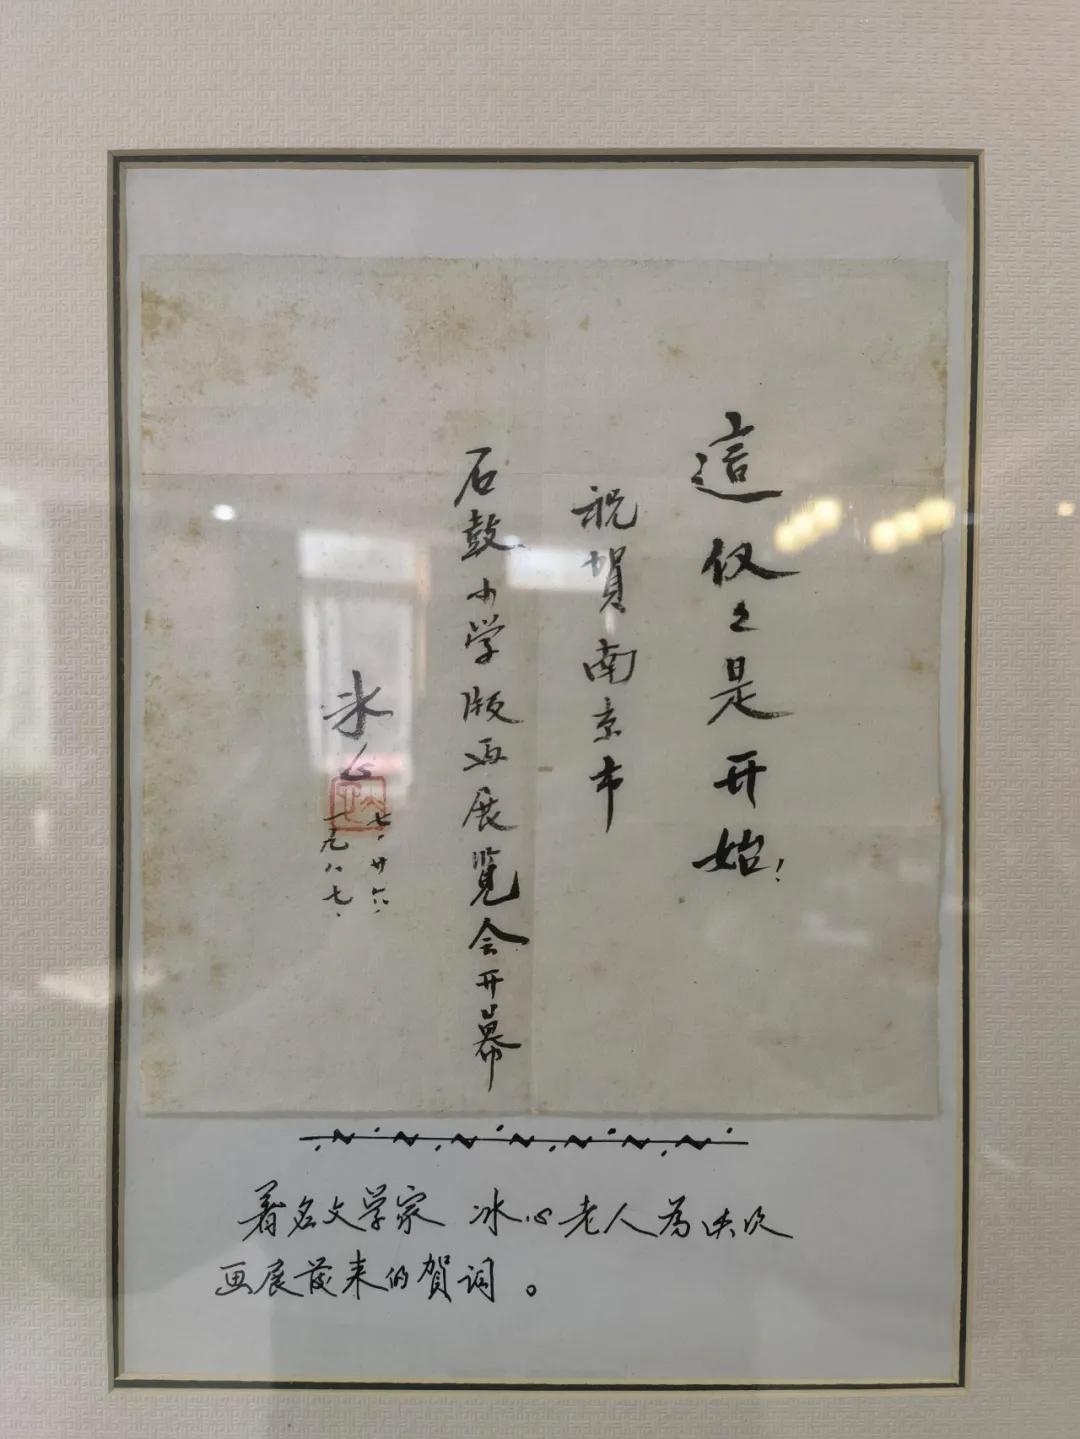 這仅々是开始！
祝賀南京市
石鼓小学版画展覧会开幕
冰心
七.廿六.
一九八七.
著名文学家 冰心老人为这次
画展发来的贺词。